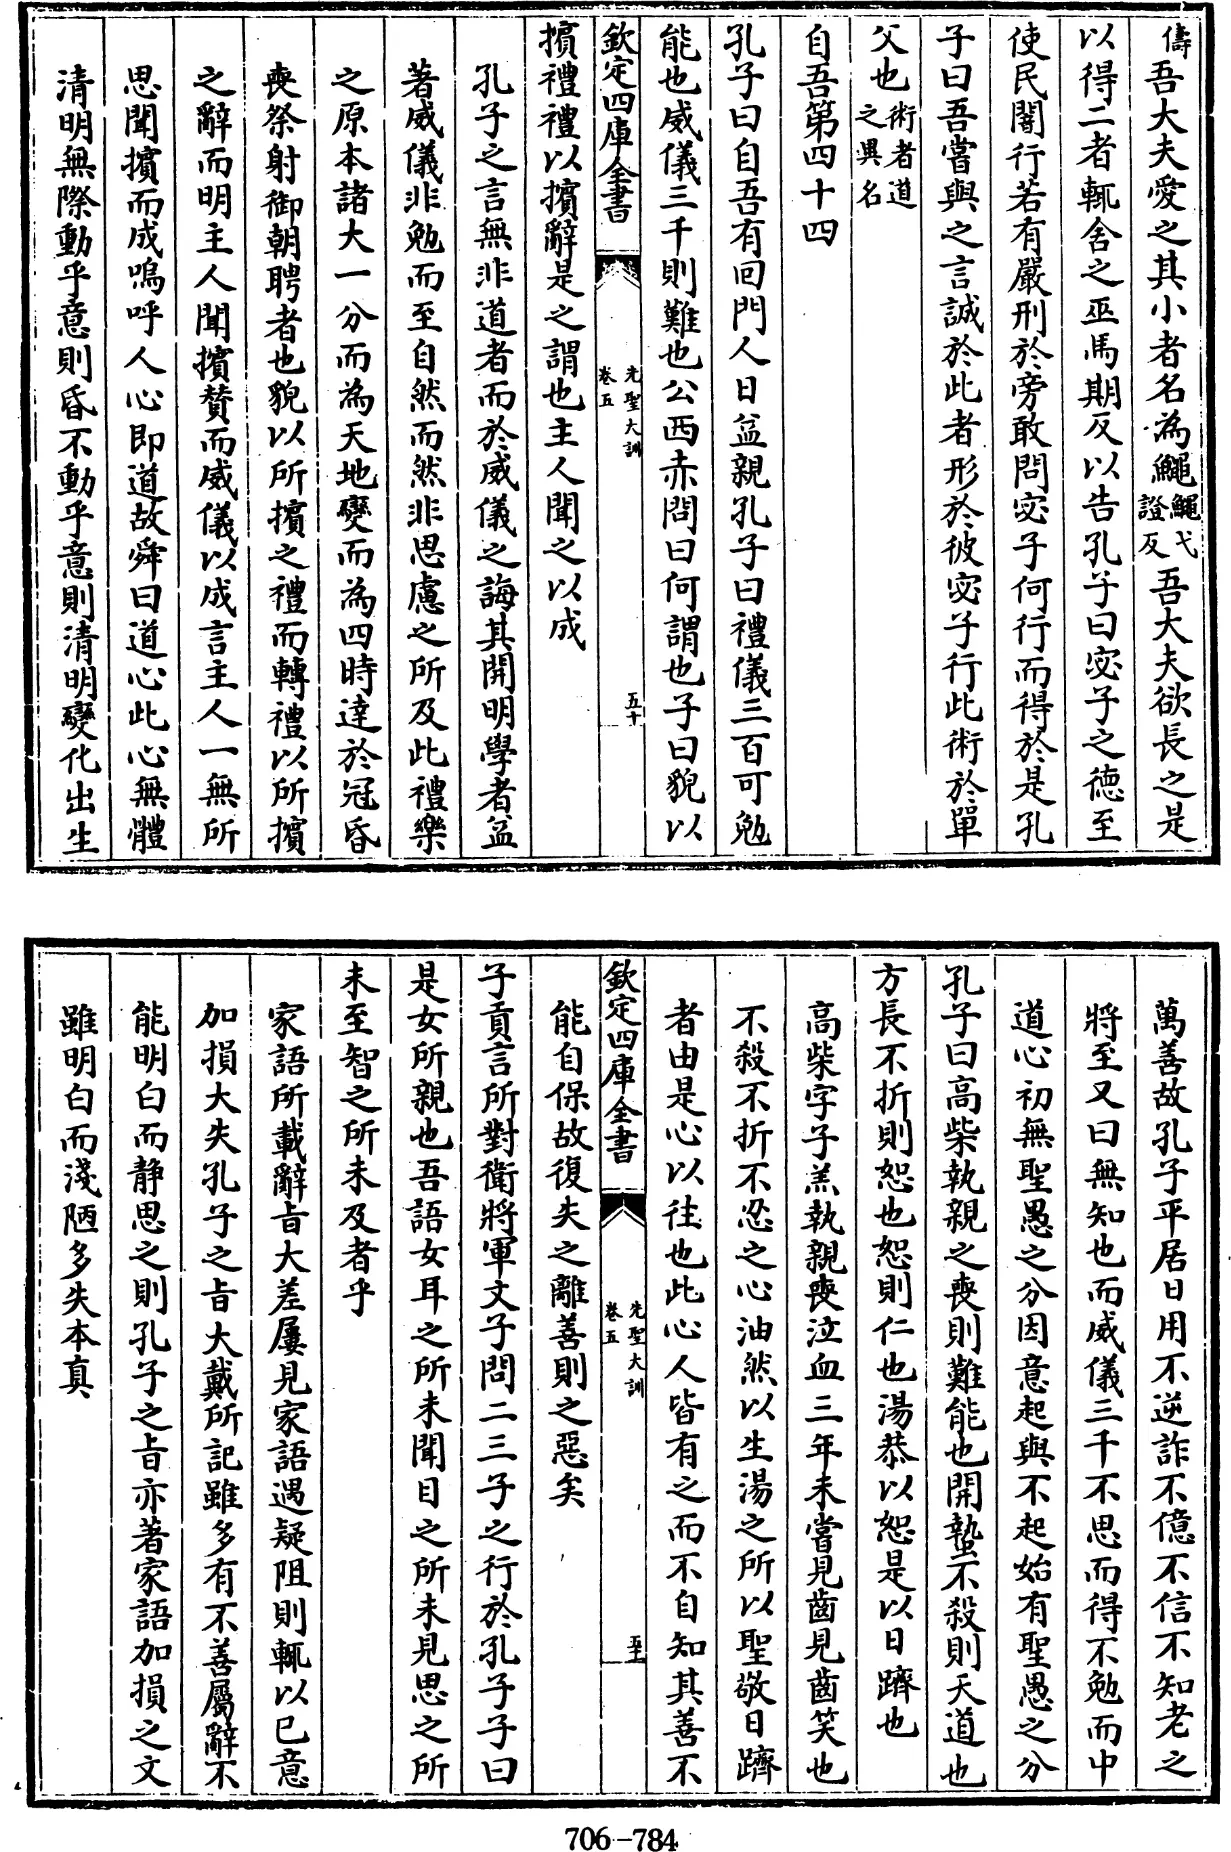 儔吾大夫愛之其小者名為鱦鱦弋證反吾大夫欲長之是
以得二者輒舍之巫馬期反以告孔子曰宓子之德至
使民闇行若有嚴刑於旁敢問宓子何行而得於是孔
子曰吾嘗與之言誠於此者形於彼宓子行此術於單
父也術者道之異名
自吾第四十四
孔子曰自吾有回門人日益親孔子曰禮儀三百可勉
能也威儀三千則難也公西赤問曰何謂也子曰貌以
欽定四庫全書
先聖大訓
卷五
五十
擯禮禮以擯辭是之謂也主人聞之以成
孔子之言無非道者而於威儀之誨其開明學者益
著威儀非勉而至自然而然非思慮之所及此禮樂
之原本諸大一分而為天地變而為四時達於冠昏
喪祭射御朝聘者也貌以所擯之禮而轉禮以所擯
之辭而明主人聞擯贊而威儀以成言主人一無所
思聞擯而成嗚呼人心即道故舜曰道心此心無體
清明無際動乎意則昏不動乎意則清明變化出生
萬善故孔子平居日用不逆詐不億不信不知老之
將至又曰無知也而威儀三千不思而得不勉而中
道心初無聖愚之分因意起與不起始有聖愚之分
孔子曰高柴執親之喪則難能也開蟄不殺則天道也
方長不折則恕也恕則仁也湯恭以恕是以日躋也
高柴字子羔執親喪泣血三年未嘗見齒見齒笑也
不殺不折不忍之心油然以生湯之所以聖敬日躋
者由是心以往也此心人皆有之而不自知其善不
欽定四庫全書
先聖大訓
卷五
五十一
能自保故復失之離善則之惡矣
子貢言所對衛將軍文子問二三子之行於孔子子曰
是女所親也吾語女耳之所未聞目之所未見思之所
未至智之所未及者乎
家語所載辭旨大差屢見家語遇疑阻則輒以已意
加損大失孔子之旨大戴所記雖多有不善屬辭不
能明白而靜思之則孔子之旨亦著家語加損之文
雖明白而淺陋多失本真
706-784